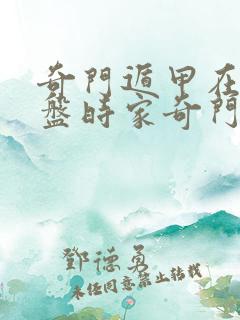 奇門遁甲在
盤時家奇門
鄧德勇
未經同意禁止轉載